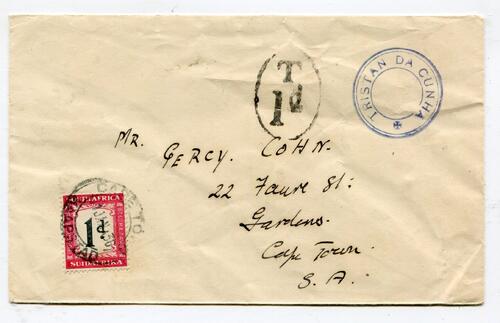 T
1d
TRISTAN DA CUNHA
MR. GERCY. COHN.
22 Faure St:
Gardens.
Cape Town.
S.A.
SOUTH AFRICA
1d
SUIDAFRIKA
CAPE TO